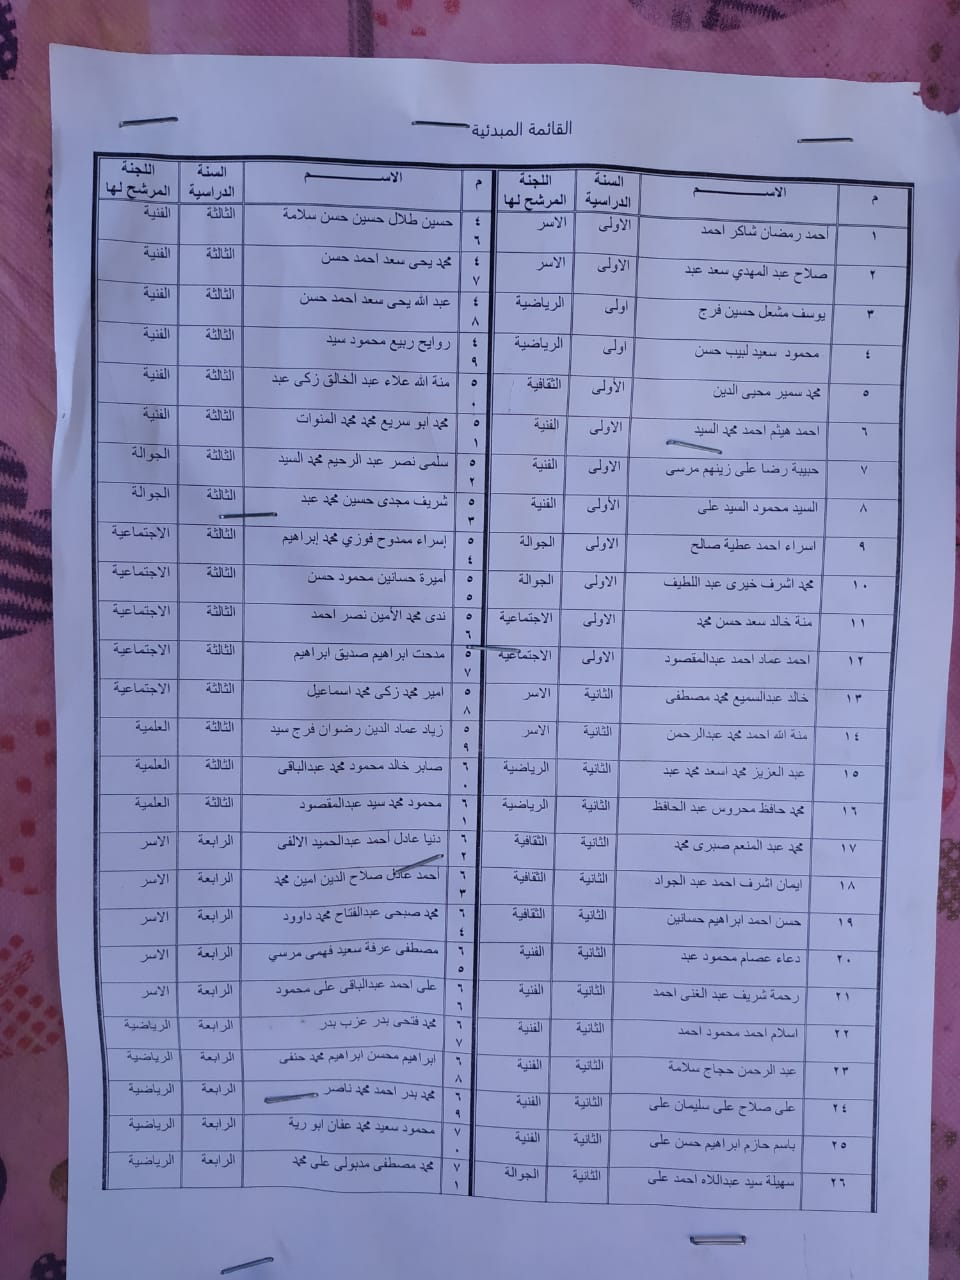 القائمة المبدئية
م الاســـــــــم السنة الدراسية اللجنة المرشح لها
١ أحمد رمضان شاكر احمد الاولى الاسر
٢ صلاح عبد المهدي سعد عبد الاولى الاسر
٣ يوسف مشعل حسين فرج اولى الرياضية
٤ محمود سعيد لبيب حسن اولى الرياضية
٥ محمد سمير محيى الدين الأولى الثقافية
٦ احمد هيثم احمد محمد السيد الاولى الفنية
٧ حبيبة رضا على زينهم مرسى الاولى الفنية
٨ السيد محمود السيد على الأولى الفنية
٩ اسراء احمد عطية صالح الاولى الجوالة
١٠ محمد اشرف خيرى عبد اللطيف الاولى الجوالة
١١ منة خالد سعد حسن محمد الاولى الاجتماعية
١٢ احمد عماد احمد عبدالمقصود الاولى الاجتماعية
١٣ خالد عبدالسميع محمد مصطفى الثانية الاسر
١٤ منة الله احمد محمد عبدالرحمن الثانية الاسر
١٥ عبد العزيز محمد اسعد محمد عبد الثانية الرياضية
١٦ محمد حافظ محروس عبد الحافظ الثانية الرياضية
١٧ محمد عبد المنعم صبرى محمد الثانية الثقافية
١٨ ايمان اشرف احمد عبد الجواد الثانية الثقافية
١٩ حسن احمد ابراهيم حسانين الثانية الثقافية
٢٠ دعاء عصام محمود عبد الثانية الفنية
٢١ رحمة شريف عبد الغنى احمد الثانية الفنية
٢٢ اسلام احمد محمود احمد الثانية الفنية
٢٣ عبد الرحمن حجاج سلامة الثانية الفنية
٢٤ على صلاح على سليمان على الثانية الفنية
٢٥ باسم حازم ابراهيم حسن على الثانية الفنية
٢٦ سهيلة سيد عبداللاه احمد على الثانية الجوالة
م الاســـــــــم السنة الدراسية اللجنة المرشح لها
٤٦ حسين طلال حسين حسن سلامة الثالثة الفنية
٤٧ محمد يحى سعد احمد حسن الثالثة الفنية
٤٨ عبد الله يحى سعد احمد حسن الثالثة الفنية
٤٩ روايح ربيع محمود سيد الثالثة الفنية
٥٠ منة الله علاء عبد الخالق زكى عبد الثالثة الفنية
٥١ محمد ابو سريع محمد محمد المنوات الثالثة الفنية
٥٢ سلمى نصر عبد الرحيم محمد السيد الثالثة الجوالة
٥٣ شريف مجدى حسين محمد عبد الثالثة الجوالة
٥٤ إسراء ممدوح فوزي محمد إبراهيم الثالثة الاجتماعية
٥٥ أميرة حسانين محمود حسن الثالثة الاجتماعية
٥٦ ندى محمد الأمين نصر احمد الثالثة الاجتماعية
٥٧ مدحت ابراهيم صديق ابراهيم الثالثة الاجتماعية
٥٨ امير محمد زكى محمد اسماعيل الثالثة الاجتماعية
٥٩ زياد عماد الدين رضوان فرج سيد الثالثة العلمية
٦٠ صابر خالد محمود محمد عبدالباقى الثالثة العلمية
٦١ محمود محمد سيد عبدالمقصود الثالثة العلمية
٦٢ دنيا عادل أحمد عبدالحميد الالفى الرابعة الاسر
٦٣ أحمد عادل صلاح الدين امين محمد الرابعة الاسر
٦٤ محمد صبحى عبدالفتاح محمد داوود الرابعة الاسر
٦٥ مصطفى عرفة سعيد فهمى مرسي الرابعة الاسر
٦٦ على احمد عبدالباقى على محمود الرابعة الاسر
٦٧ محمد فتحى بدر عزب بدر الرابعة الرياضية
٦٨ ابراهيم محسن ابراهيم محمد حنفى الرابعة الرياضية
٦٩ محمد بدر احمد محمد ناصر الرابعة الرياضية
٧٠ محمود سعيد محمد عفان ابو رية الرابعة الرياضية
٧١ محمد مصطفى مدبولى على محمد الرابعة الرياضية